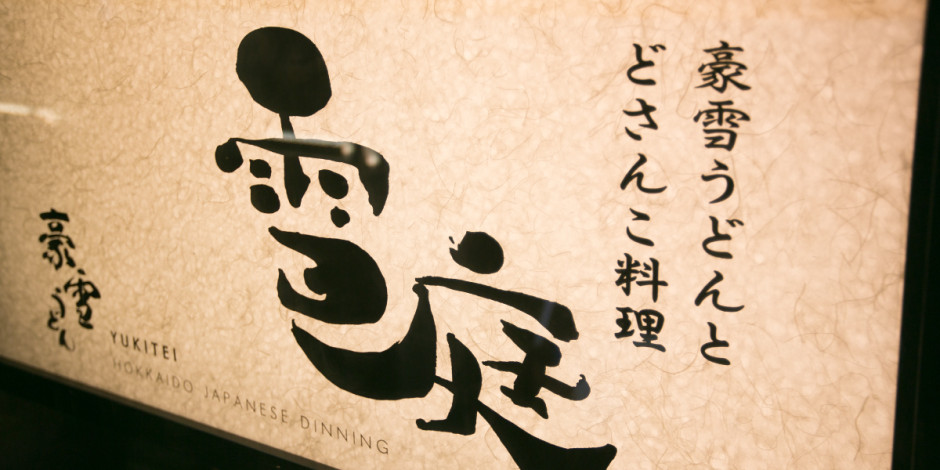 豪雪うどんと
どさんこ料理
雪庭
豪雪
うどん
YUKITEI
HOKKAIDO JAPANESE DINNING